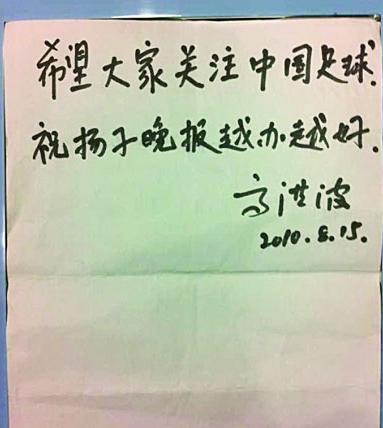 希望大家关注中国足球.
祝扬子晚报越办越好.
高洪波
2010.8.15.